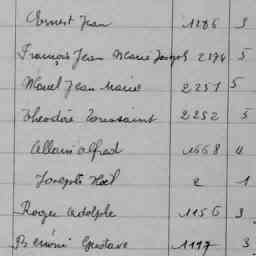 Ernest Jean 1186 3
François Jean Marie Joseph 2174 5
Noël Jean Marie 2251 5
Théodore Toussaint 2252 5
Alfred 1668 4
Joseph Noël 2 1
Roger Adolphe 1156 3
Gustave 1197 3